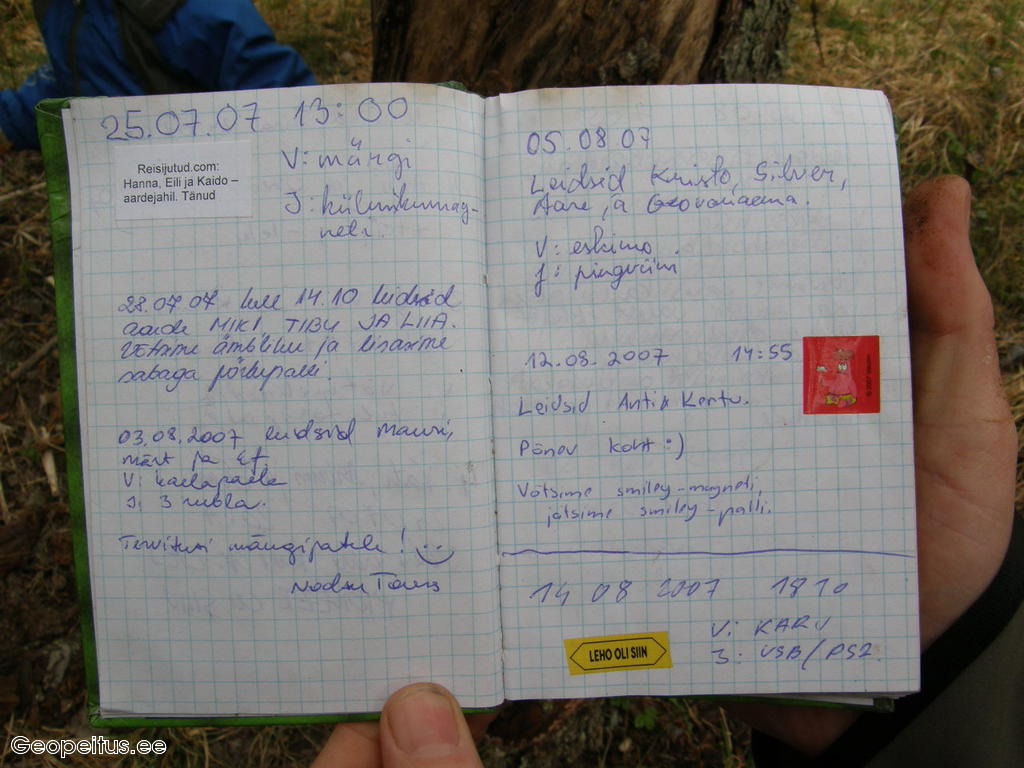 25.07.07 13:00
Reisijutud.com:
Hanna, Eili ja Kaido –
aardejahil. Tänud
V: märgi
J: külmikumag-
neti.
28.07.07 kell 14.10 leidsid
aarde MIKI, TIBU JA LIIA.
VÕtsime ämbliku ja lisasime
sabaga põrkepalli.
03.08.2007 leidsid Mauri,
märt ja
V: kaelapaela
J: 3 rubla.
Tervitusi mängijatele!
05.08.07
Leidsid Kristo, Silver,
Aare ja
V: eskimo.
J: pingviin
12.08.2007 14:55
Leidsid Anti & Kertu.
Põnev koht :)
Võtsime smiley-magneti,
jätsime smiley-palli.
14 08 2007 1810
V: KARU
J: USB/PS2.
LEHO OLI SIIN
Geopeitus.ee